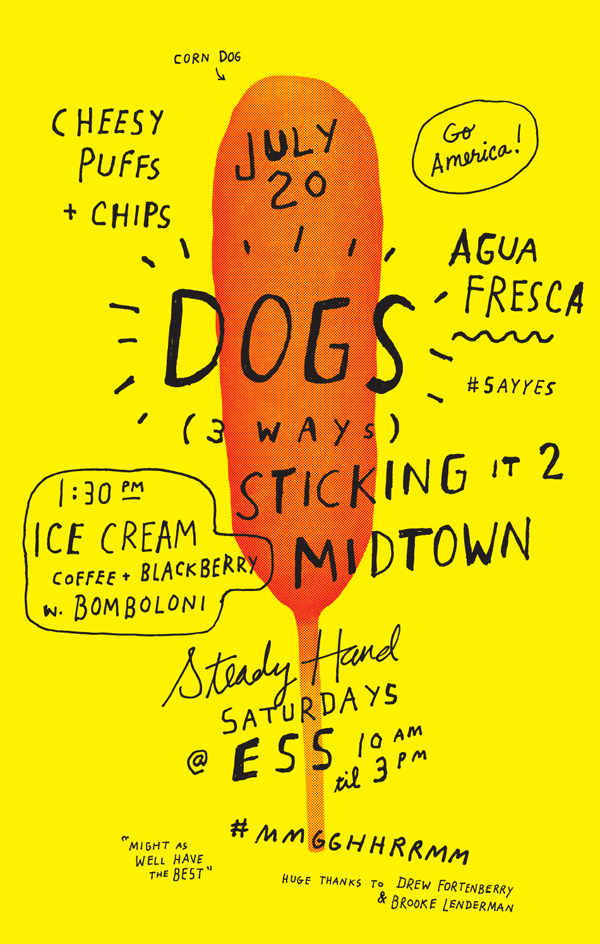 CORN DOG
CHEESY
PUFFS
+ CHIPS
JULY
20
Go
America!
AGUA
FRESCA
#SAYYES
DOGS
(3 WAYS)
STICKING IT 2
MIDTOWN
1:30 PM
ICE CREAM
COFFEE + BLACKBERRY
W. BOMBOLONI
Steady Hand
SATURDAYS
@ ESS 10 AM
til 3 PM
#MMGGHHRRMM
"MIGHT AS
WELL HAVE
THE BEST"
HUGE THANKS TO DREW FORTENBERRY
& BROOKE LENDERMAN